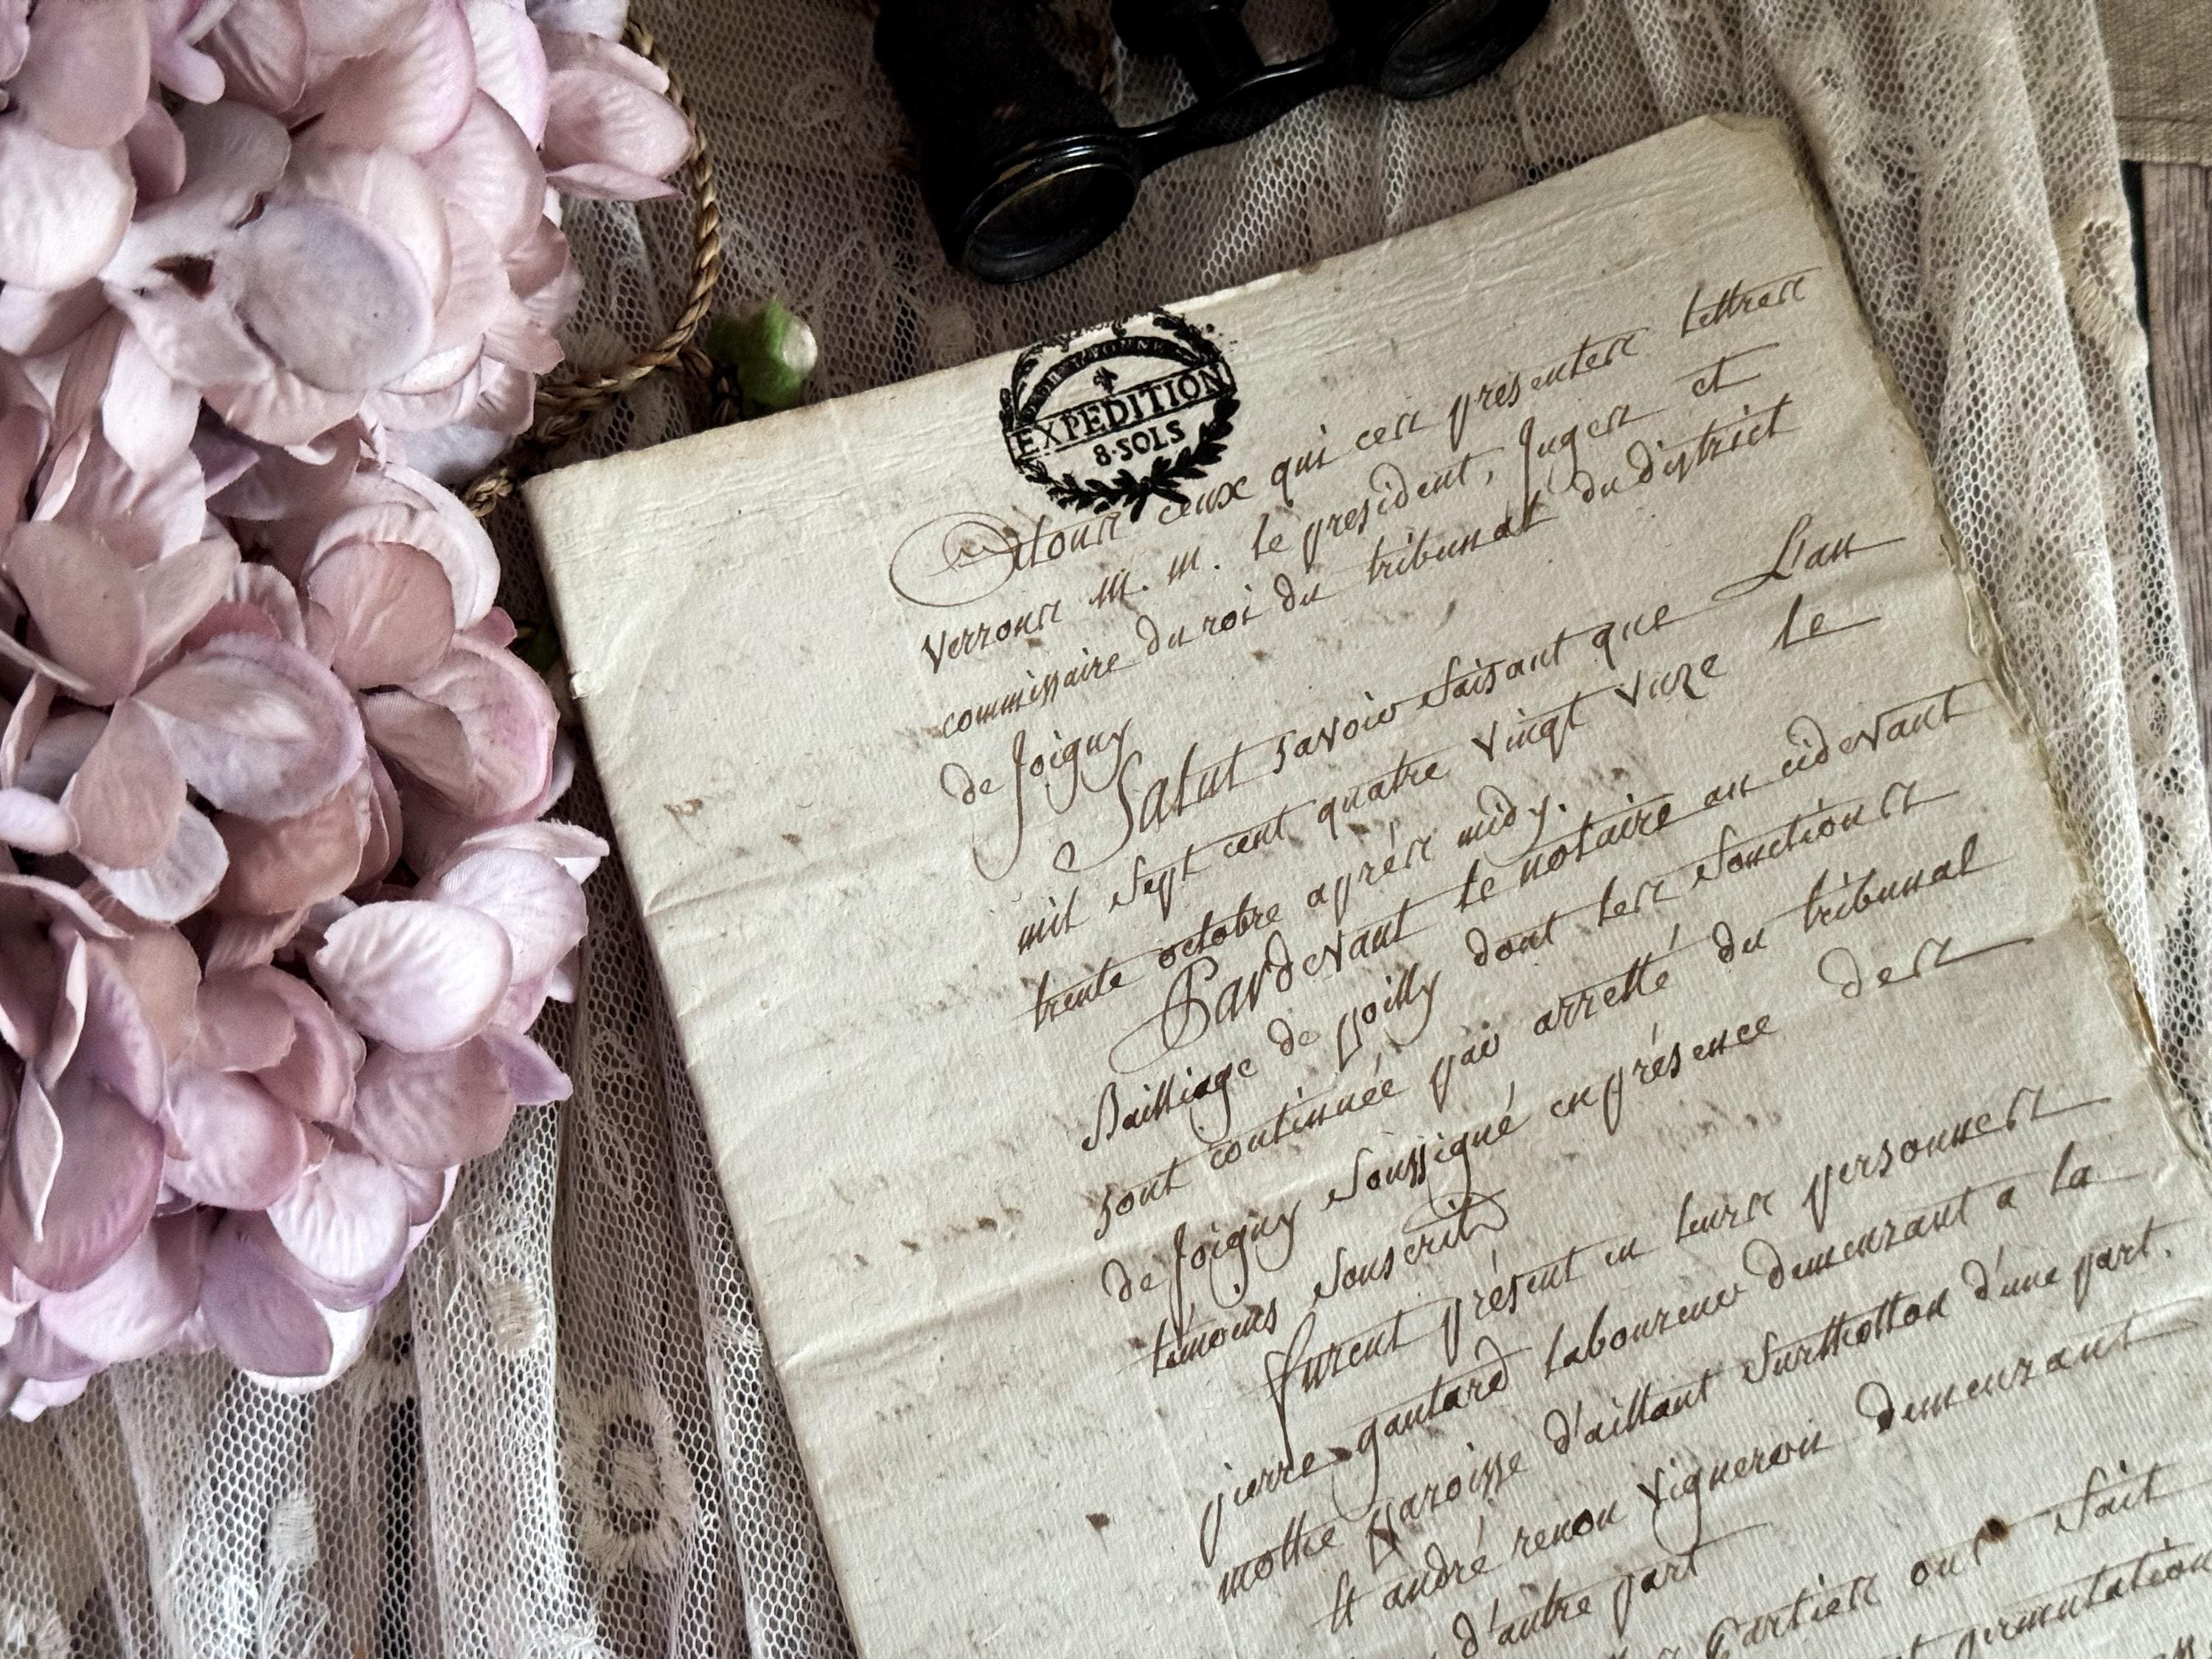 EXPEDITION
8·SOLS
Atous ceux qui ces presentes lettres
verrons m. m. le president, Juges et
commissaire du roi du tribunal du district
de Joigny
Salut savoir faisant que L'an
mil sept cent quatre vingt unze le
trente octobre aprés midy.
Pardevant le notaire au cidevant
Bailliage de poilly dont les fonctions
sont continuée par arretté du tribunal
de Joigny soussigné en présence des
témoins souscrits
furent présent en leurs personnes
pierre gautard laboureur demeurant a la
motthe paroisse d'aillant surthollon d'une part.
Et andré renou vigneron demeurant
d'autre part
Parties ont fait
permutation